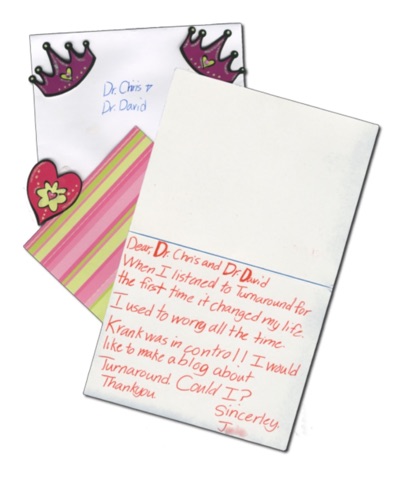 Dr. Chris &
Dr. David
Dear, Dr. Chris and Dr David
When I listened to Turnaround for
the first time it changed my life.
I used to worry all the time.
Krank was in control! I would
like to make a blog about
Turnaround. Could I?
Thankyou
Sincerley,